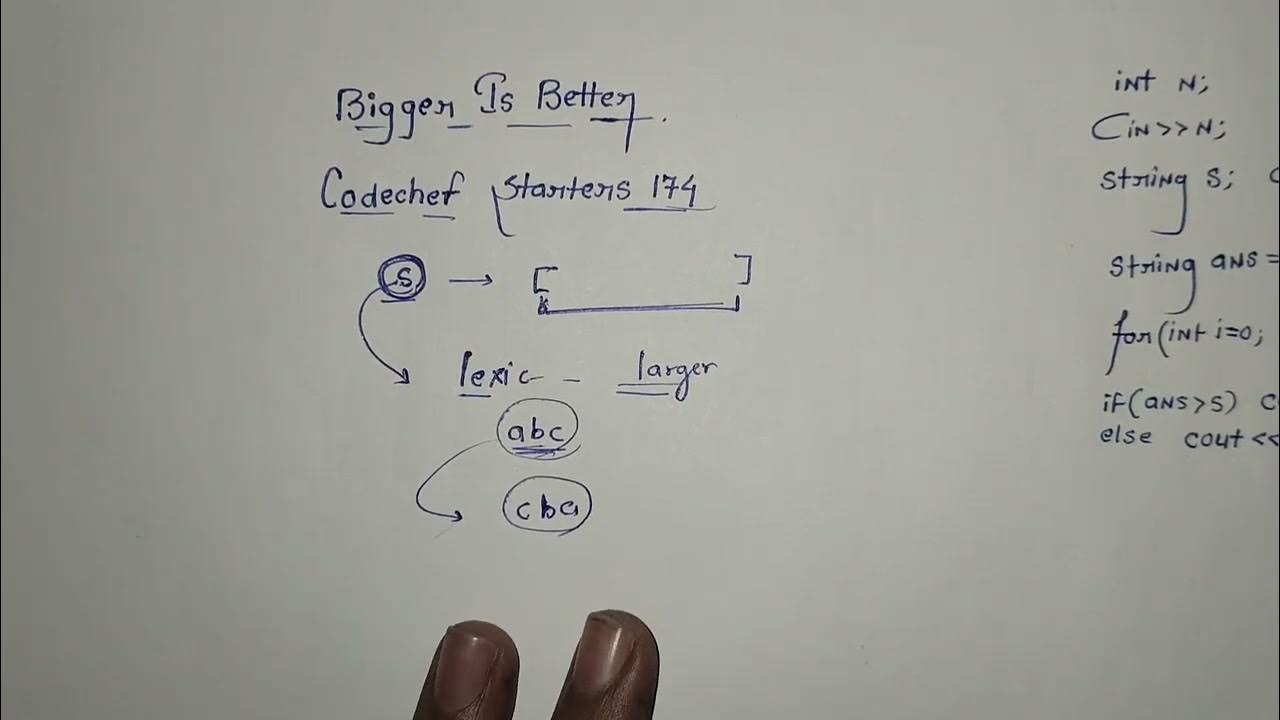 Bigger Is Better.
Codechef Starters 174
S → [ ]
lexic - larger
abc
cba
int N;
Cin>>N;
string s;
string ans =
for(int i=0;
if(ans>s) c
else cout <<